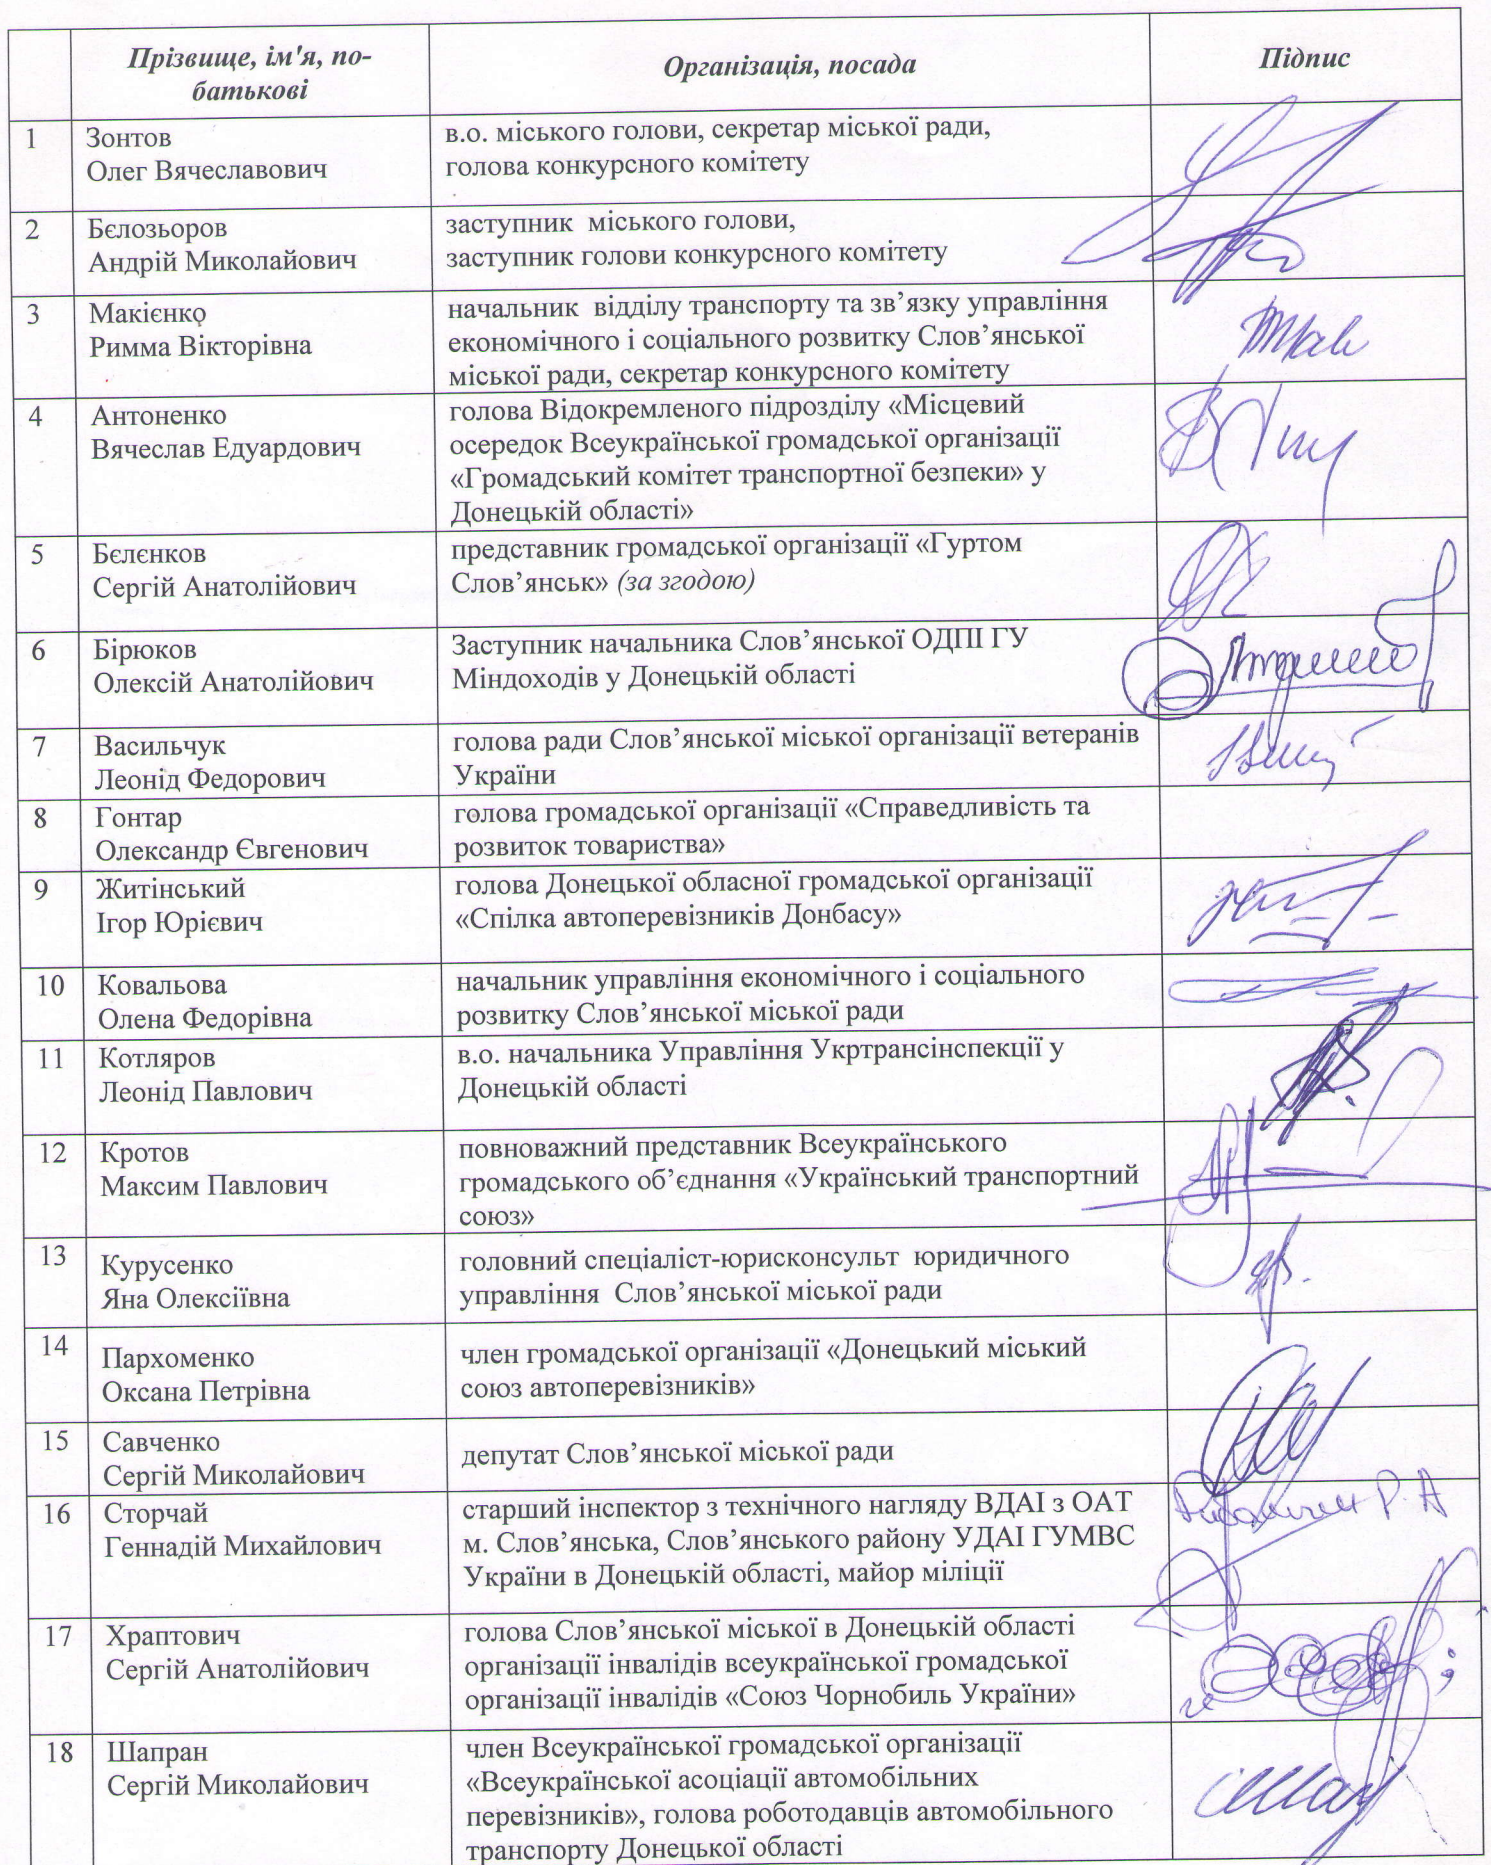 Прізвище, ім'я, по-
батькові
Організація, посада
Підпис
1
Зонтов
Олег Вячеславович
в.о. міського голови, секретар міської ради,
голова конкурсного комітету
2
Бєлозьоров
Андрій Миколайович
заступник міського голови,
заступник голови конкурсного комітету
3
Макієнко
Римма Вікторівна
начальник відділу транспорту та зв’язку управління
економічного і соціального розвитку Слов’янської
міської ради, секретар конкурсного комітету
4
Антоненко
Вячеслав Едуардович
голова Відокремленого підрозділу «Місцевий
осередок Всеукраїнської громадської організації
«Громадський комітет транспортної безпеки» у
Донецькій області»
5
Бєлєнков
Сергій Анатолійович
представник громадської організації «Гуртом
Слов’янськ» (за згодою)
6
Бірюков
Олексій Анатолійович
Заступник начальника Слов’янської ОДПІ ГУ
Міндоходів у Донецькій області
7
Васильчук
Леонід Федорович
голова ради Слов’янської міської організації ветеранів
України
8
Гонтар
Олександр Євгенович
голова громадської організації «Справедливість та
розвиток товариства»
9
Житінський
Ігор Юрієвич
голова Донецької обласної громадської організації
«Спілка автоперевізників Донбасу»
10
Ковальова
Олена Федорівна
начальник управління економічного і соціального
розвитку Слов’янської міської ради
11
Котляров
Леонід Павлович
в.о. начальника Управління Укртрансінспекції у
Донецькій області
12
Кротов
Максим Павлович
повноважний представник Всеукраїнського
громадського об’єднання «Український транспортний
союз»
13
Курусенко
Яна Олексіївна
головний спеціаліст-юрисконсульт юридичного
управління Слов’янської міської ради
14
Пархоменко
Оксана Петрівна
член громадської організації «Донецький міський
союз автоперевізників»
15
Савченко
Сергій Миколайович
депутат Слов’янської міської ради
16
Сторчай
Геннадій Михайлович
старший інспектор з технічного нагляду ВДАІ з ОАТ
м. Слов’янська, Слов’янського району УДАІ ГУМВС
України в Донецькій області, майор міліції
Р. А
17
Храптович
Сергій Анатолійович
голова Слов’янської міської в Донецькій області
організації інвалідів всеукраїнської громадської
організації інвалідів «Союз Чорнобиль України»
18
Шапран
Сергій Миколайович
член Всеукраїнської громадської організації
«Всеукраїнської асоціації автомобільних
перевізників», голова роботодавців автомобільного
транспорту Донецької області